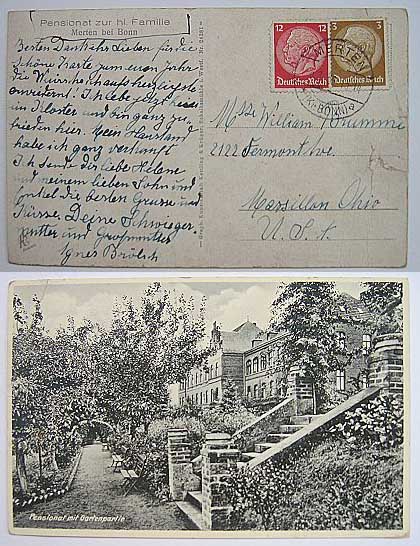 Pensionat zur hl. Familie
Merten bei Bonn
Besten Dank Ihr Lieben für die
schöne Karte zum neuen Jahr
die Wünsche herzlichst
erwidernd! Ich lebe jetzt hier
im Kloster und bin ganz zu-
frieden hier. Mein Haushalt
habe ich ganz verkauft
Ich sende dir liebe Helene
und meinem lieben Sohn und
die besten Grüsse und
Küsse. Deine Schwieger-
mutter und Grossmutter
Agnes
12 12
Deutsches Reich
3 3
Deutsches Reich
MERTEN
William
2122
Ohio
U. S. A.
Pensionat mit Gartenpartie